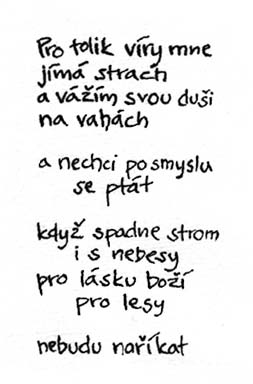 Pro tolik víry mne
jímá strach
a vážím svou duši
na vahách
a nechci po smyslu
se ptát
když spadne strom
i s nebesy
pro lásku boží
pro lesy
nebudu naříkat